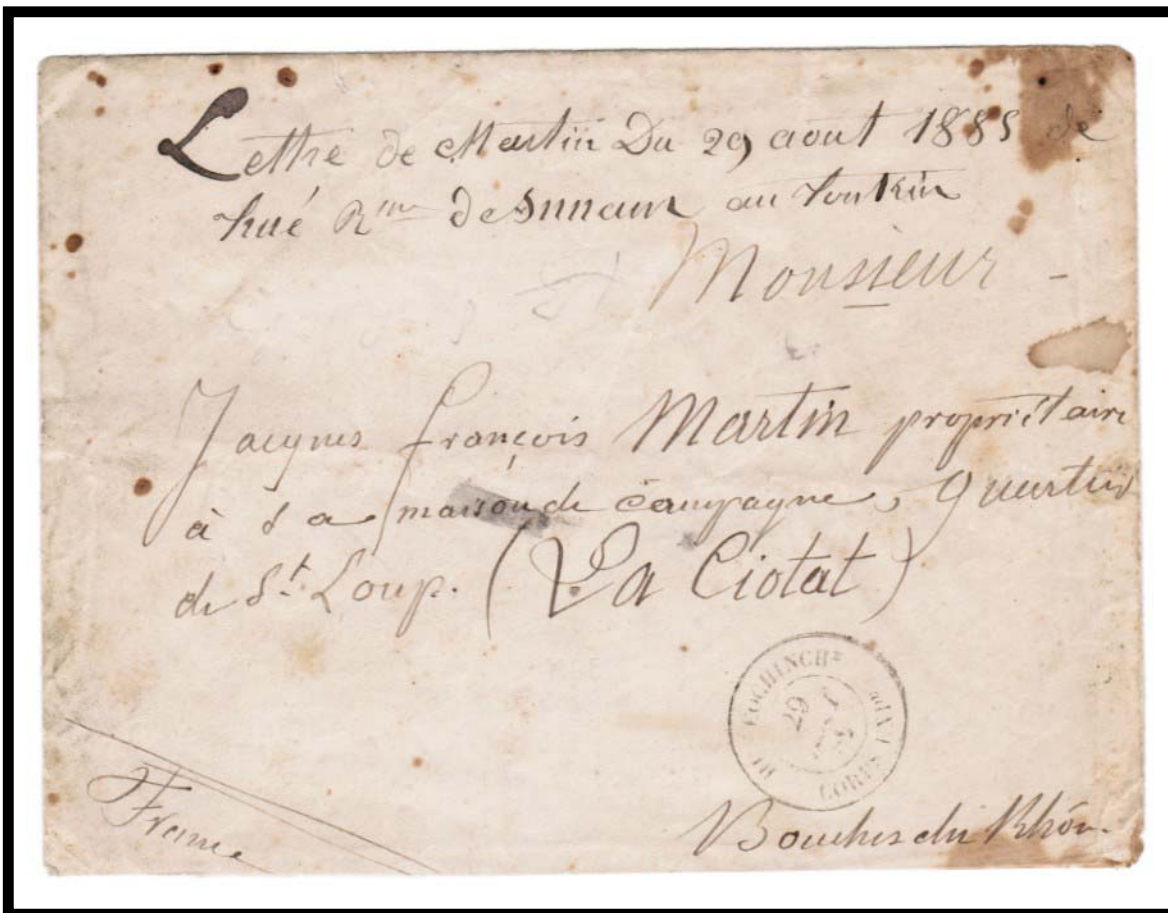 Lettre de Martin Du 29 aout 1885 de
hué R.me de Annam au Tonkin
Monsieur
Jacques françois Martin propriétaire
à sa maison de campagne, quartier
de St. Loup. (La Ciotat)
COCHINCHE
29
CORPS EXP
France
Bouches du Rhône